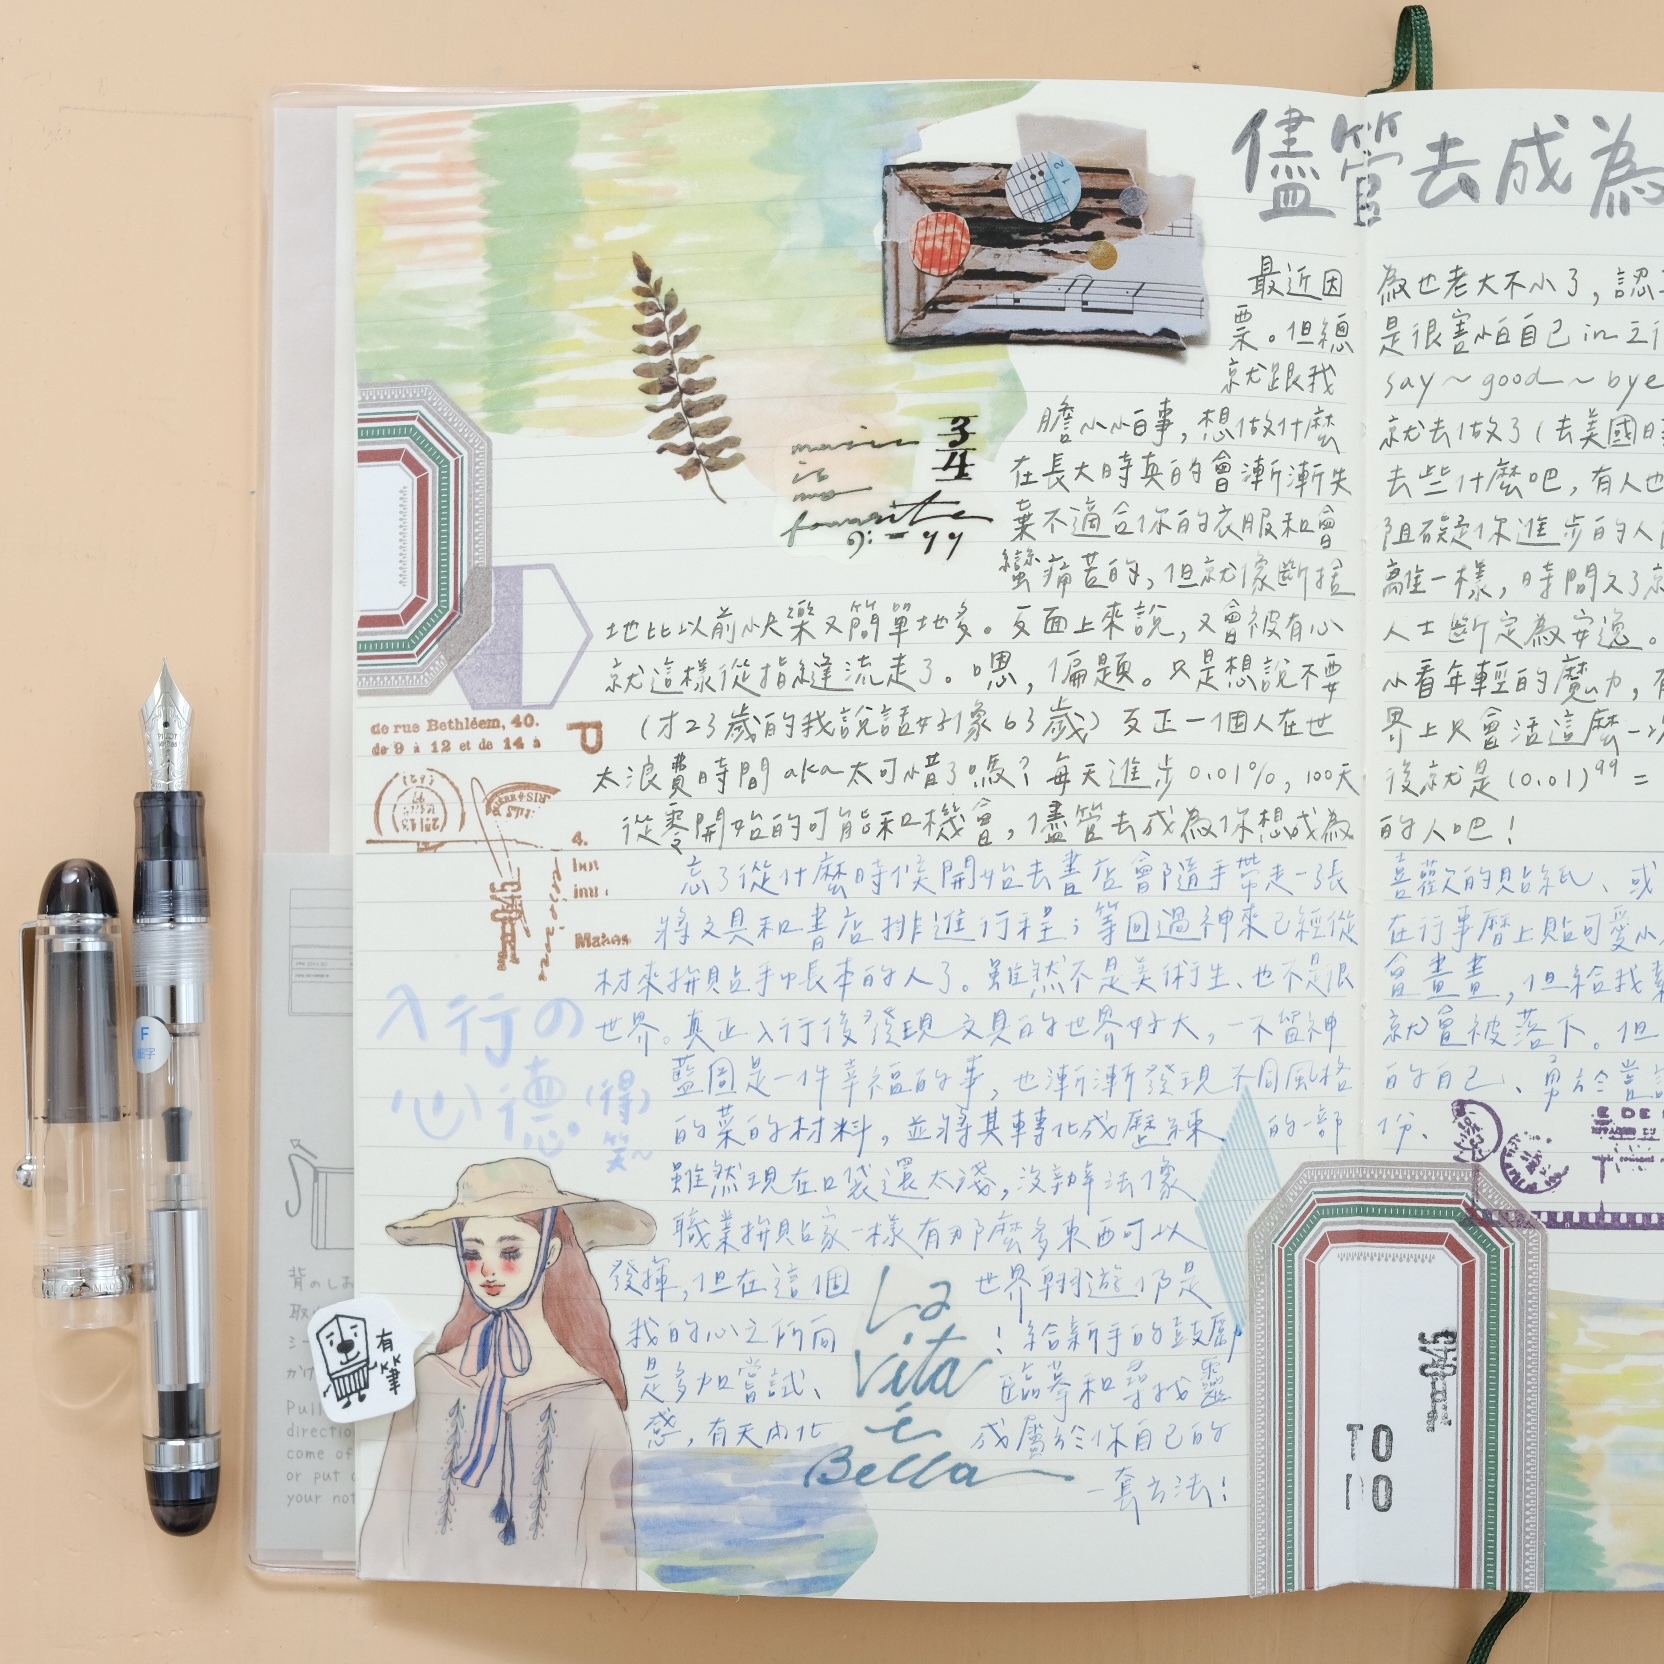 儘管去成為
最近因為也老大不小了,認
票。但總是很害怕自己 in 之
就跟我 say ~ good ~ bye
膽小小百事,想做什麼就去做了(去美國
在長大時真的會漸漸失去些什麼吧,有人也
棄不適合你的衣服和會阻礙你進步的人
蠻痛苦的,但就像斷捨離一樣,時間久了
地比以前快樂又簡單地多。反面上來說,又會被有心人士斷定為安逸。
就這樣從指縫流走了。嗯,偏題。只是想說不要小看年輕的魔力,
(才23歲的我說話好像63歲) 反正一個人在世界上只會活這麼一
太浪費時間 aka 太可惜了嗎?每天進步 0.01%, 100天後就是 (0.01)⁹⁹ =
從零開始的可能和機會,儘管去成為你想成為的人吧!
忘了從什麼時候開始去書店會隨手帶走一張喜歡的貼紙、或
將文具和書店排進行程;等回過神來已經從在行事曆上貼可愛小
材來拼貼手帳本的人了。雖然不是美術生、也不是很會畫畫,但給我
世界。真正入行後發現文具的世界好大,一不留神就會被落下。但
藍圖是一件幸福的事,也漸漸發現不同風格的自己、勇於嘗
的菜的材料,並將其轉化成歷練的一部份、
雖然現在口袋還太淺,沒辦法像
職業拼貼家一樣有那麼多東西可以
發揮,但在這個世界翱遊仍是
我的心之所向!給新手的鼓勵
是多加嘗試、臨摹和尋找靈
感,有天內化成屬於你自己的
一套方法!
入行の
心德(得)
笑~
3
4
music
is
my
favorite
de rue Bethléem, 40.
de 9 à 12 et de 14 à
P
4.
Makes
La
Vita
è
Bella
有
筆
TO
DO
F
細字
PILOT
背のしお
取
シー
かけ
Pull
directio
come of
or put
your not